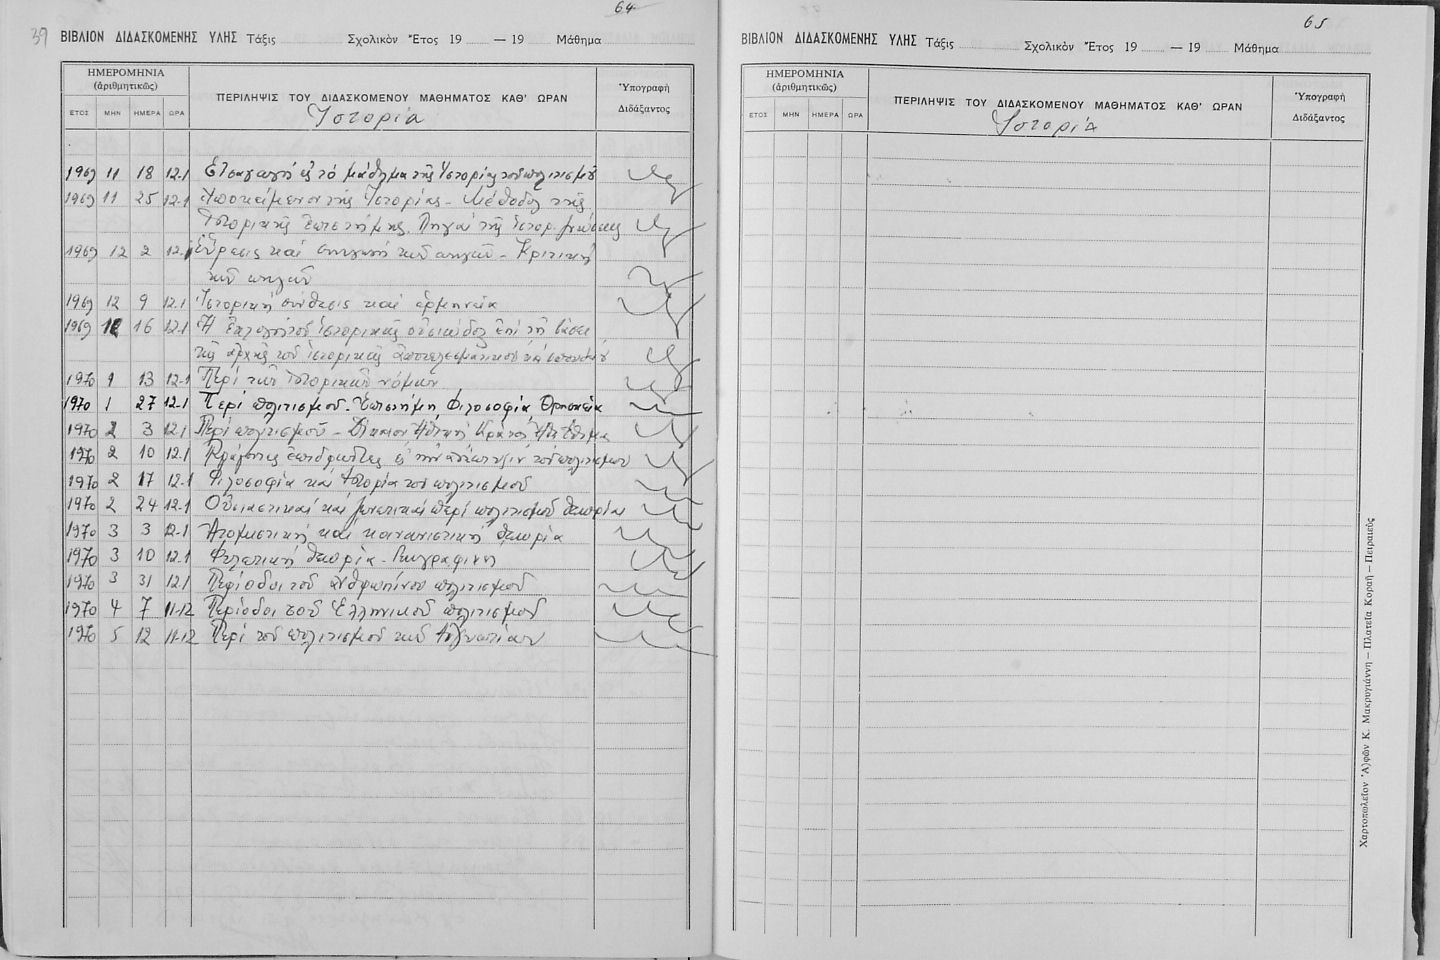 39
64
ΒΙΒΛΙΟΝ ΔΙΔΑΣΚΟΜΕΝΗΣ ΥΛΗΣ Τάξις Σχολικὸν Ἔτος 19 — 19 Μάθημα
ΗΜΕΡΟΜΗΝΙΑ
(ἀριθμητικῶς)
ΕΤΟΣ ΜΗΝ ΗΜΕΡΑ ΩΡΑ
ΠΕΡΙΛΗΨΙΣ ΤΟΥ ΔΙΔΑΣΚΟΜΕΝΟΥ ΜΑΘΗΜΑΤΟΣ ΚΑΘ' ΩΡΑΝ
Ἱστορία
Ὑπογραφὴ
Διδάξαντος
1969 11 18 12-1 Εἰσαγωγὴ εἰς τὸ μάθημα τῆς Ἱστορίας τοῦ πολιτισμοῦ
1969 11 25 12-1 Ὑποκείμενον τῆς Ἱστορίας - Μέθοδος τῆς
Ἱστορικῆς ἐπιστήμης. Πηγαὶ τῆς ἱστορ. γνώσεως
1969 12 2 12-1 Εὕρεσις καὶ συναγωγὴ τῶν πηγῶν - Κριτικὴ
τῶν πηγῶν
1969 12 9 12-1 Ἱστορικὴ σύνθεσις καὶ ἑρμηνεία
1969 12 16 12-1 Ἡ ἐκλογὴ τοῦ ἱστορικῶς οὐσιώδους ἐπὶ τῇ βάσει
τῆς ἀρχῆς τοῦ ἱστορικῶς ἀποτελεσματικοῦ καὶ
1970 1 13 12-1 Περὶ τῶν ἱστορικῶν νόμων
1970 1 27 12-1 Περὶ πολιτισμοῦ. Ἐπιστήμη Φιλοσοφία Θρησκεία
1970 2 3 12-1 Περὶ πολιτισμοῦ - Δίκαιον Ἠθικὴ Κράτος Ἤθη Ἔθιμα
1970 2 10 12-1 ἐπιδρῶντες εἰς τὴν ἀνάπτυξιν τοῦ πολιτισμοῦ
1970 2 17 12-1 Φιλοσοφία καὶ Ἱστορία τοῦ πολιτισμοῦ
1970 2 24 12-1 Οὐσιαστικαὶ καὶ περὶ πολιτισμοῦ θεωρίαι
1970 3 3 12-1 Ἀτομιστικὴ καὶ κοινωνιστικὴ θεωρία
1970 3 10 12-1 Φυλετικὴ θεωρία - Γεωγραφικὴ
1970 3 31 12-1 Περίοδοι τοῦ ἀνθρωπίνου πολιτισμοῦ
1970 4 7 11-12 Περίοδοι τοῦ Ἑλληνικοῦ πολιτισμοῦ
1970 5 12 11-12 Περὶ τοῦ πολιτισμοῦ τῶν Αἰγυπτίων
65
ΒΙΒΛΙΟΝ ΔΙΔΑΣΚΟΜΕΝΗΣ ΥΛΗΣ Τάξις Σχολικὸν Ἔτος 19 — 19 Μάθημα
ΗΜΕΡΟΜΗΝΙΑ
(ἀριθμητικῶς)
ΕΤΟΣ ΜΗΝ ΗΜΕΡΑ ΩΡΑ
ΠΕΡΙΛΗΨΙΣ ΤΟΥ ΔΙΔΑΣΚΟΜΕΝΟΥ ΜΑΘΗΜΑΤΟΣ ΚΑΘ' ΩΡΑΝ
Ἱστορία
Ὑπογραφὴ
Διδάξαντος
Χαρτοπωλεῖον Ἀ)φῶν Κ. Μακρυγιάννη – Πλατεῖα Κοραῆ – Πειραιεὺς